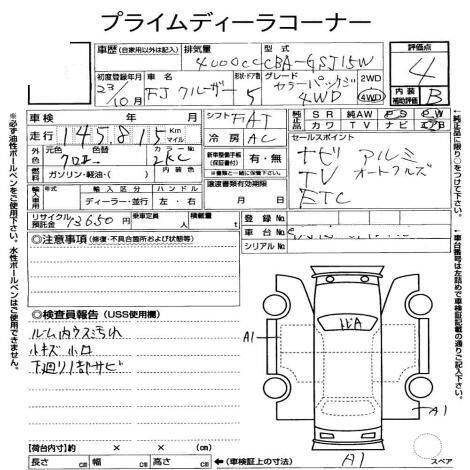 プライムディーラコーナー
車歴 (自家用以外は記入) 排気量 型式 評価点
4000cc CBA-GSJ15W 4
初度登録年月 車名 形状・ドア数 グレード 2WD 内装補助評価 B
23/10月 FJクルーザー 5 カラーパッケージ 4WD 4WD
車検 年 月 シフト FAT 純正品 SR 純AW PS PW
カワ TV ナビ
走行 145,815 Km マイル 冷房 AC セールスポイント
外色 元色 色替 カラーNo. 内装色 ナビ アルミ
クロエー 2KC TV オートクルズ
燃料 ガソリン・軽油・( ) 新車整備手帳(保証書付) 有・無 ETC
※書類と一緒に保管下さい。
輸入車用 年式 輸入区分 ハンドル 譲渡書類有効期限
ディーラー・並行 左・右 月 日
リサイクル預託金 13650円 乗車定員 人 積載量 t 登録No.
◎注意事項 (修復・不具合箇所および状態等) 車台No.
シリアルNo.
◎検査員報告 (USS使用欄)
ルーム内ウス汚れ
小キズ 小凹
下廻り1部サビ
A1
A1
A1
【荷台内寸】 × × (cm) スペア
長さ cm 幅 cm 高さ cm ←(車検証上の寸法)
※必ず油性ボールペンをご使用下さい。水性ボールペンはご使用できません。
←純正品に限り○をつけて下さい。
←車台番号は左詰めで車検証記載の通りご記入下さい。